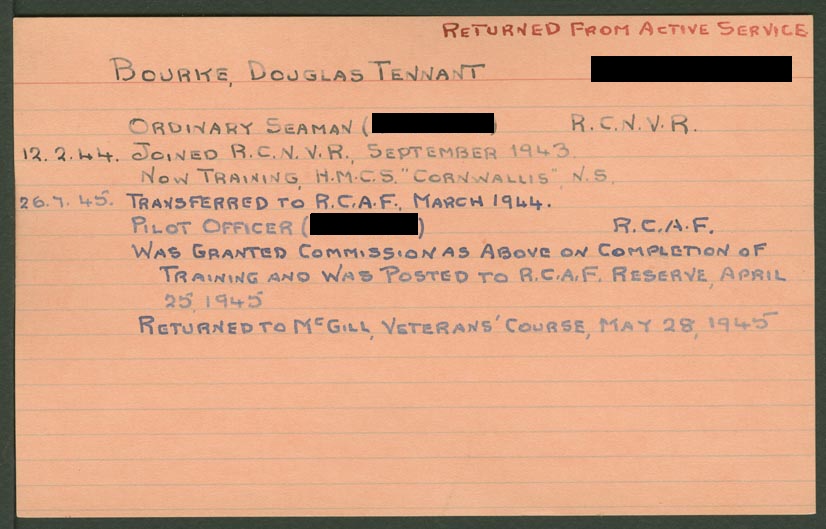 RETURNED FROM ACTIVE SERVICE
BOURKE, DOUGLAS TENNANT
ORDINARY SEAMAN ( ) R.C.N.V.R.
12.2.44. JOINED R.C.N.V.R., SEPTEMBER 1943.
NOW TRAINING, H.M.C.S. "CORNWALLIS", N.S.
26.7.45. TRANSFERRED TO R.C.A.F., MARCH 1944.
PILOT OFFICER ( ) R.C.A.F.
WAS GRANTED COMMISSION AS ABOVE ON COMPLETION OF
TRAINING AND WAS POSTED TO R.C.A.F. RESERVE, APRIL
25, 1945
RETURNED TO MCGILL, VETERANS' COURSE, MAY 28, 1945